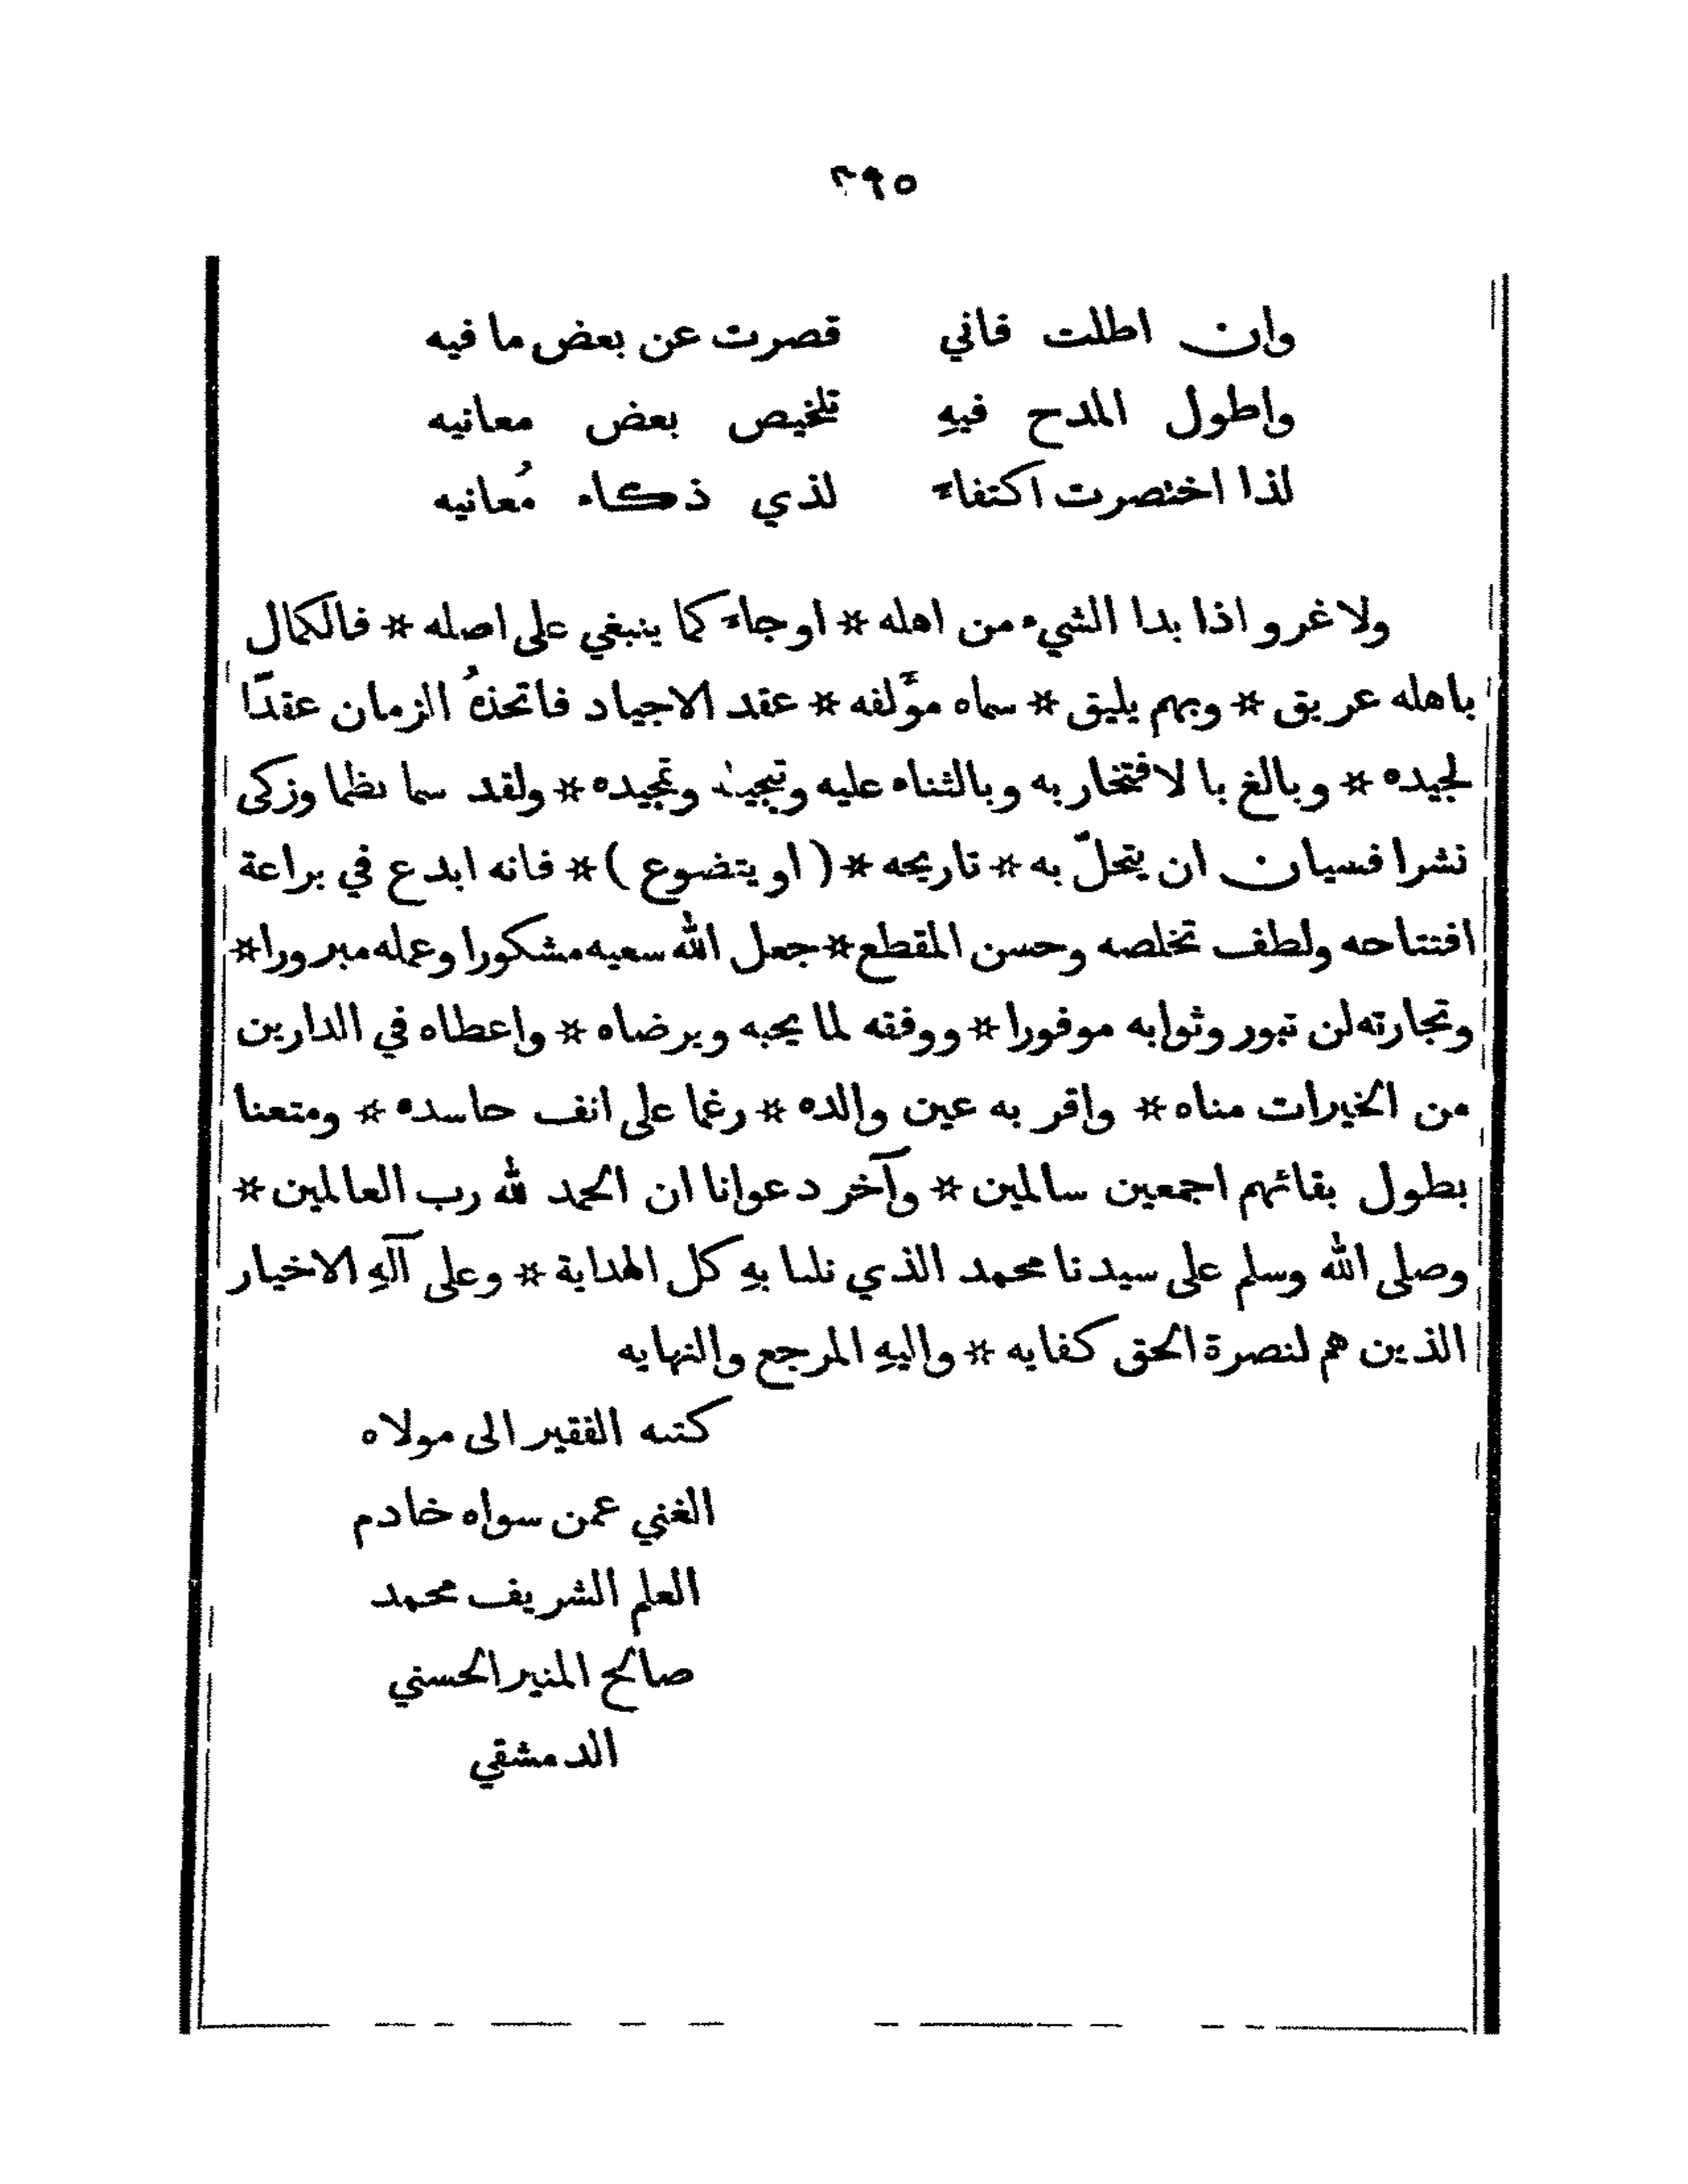 ٢٩٥
وان اطلت فاني قصرت عن بعض ما فيه
واطول المدح فيهِ تلخيص بعض معانيه
لذا اختصرت اكتفاءً لذي ذكاء مُعانيه
ولا غرو اذا بدا الشيء من اهله * او جاءَ كما ينبغي على اصله * فالكمال
باهله عريق * وبهم يليق * سماه مؤَلفه * عقد الاجياد فاتخذهُ الزمان عقدًا
لجيده * وبالغ بالافتخار به وبالثناء عليه وتمجيده * ولقد سما نظما وزكى
نشرا فسيان ان يتحلّ به * تاريخه * ( او يتضوع ) * فانه ابدع في براعة
افتتاحه ولطف تخلصه وحسن المقطع * جعل الله سعيه مشكورا وعمله مبرورا *
وتجارته لن تبور وثوابه موفورا * ووفقه لما يحبه ويرضاه * واعطاه في الدارين
من الخيرات مناه * واقر به عين والده * رغما على انف حاسده * ومتعنا
بطول بقائهم اجمعين سالمين * وآخر دعوانا ان الحمد لله رب العالمين *
وصلى الله وسلم على سيدنا محمد الذي نلنا بهِ كل الهداية * وعلى آلهِ الاخيار
الذين هم لنصرة الحق كفايه * واليهِ المرجع والنهايه
كتبه الفقير الى مولاه
الغني عمن سواه خادم
العلم الشريف محمد
صالح المنير الحسني
الدمشقي